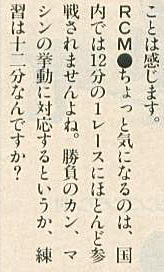 ことは感じます。
RCM●ちょっと気になるのは、国
内では12分の1レースにほとんど参
戦されませんよね。勝負のカン、マ
シンの挙動に対応するというか、練
習は十二分なんですか?